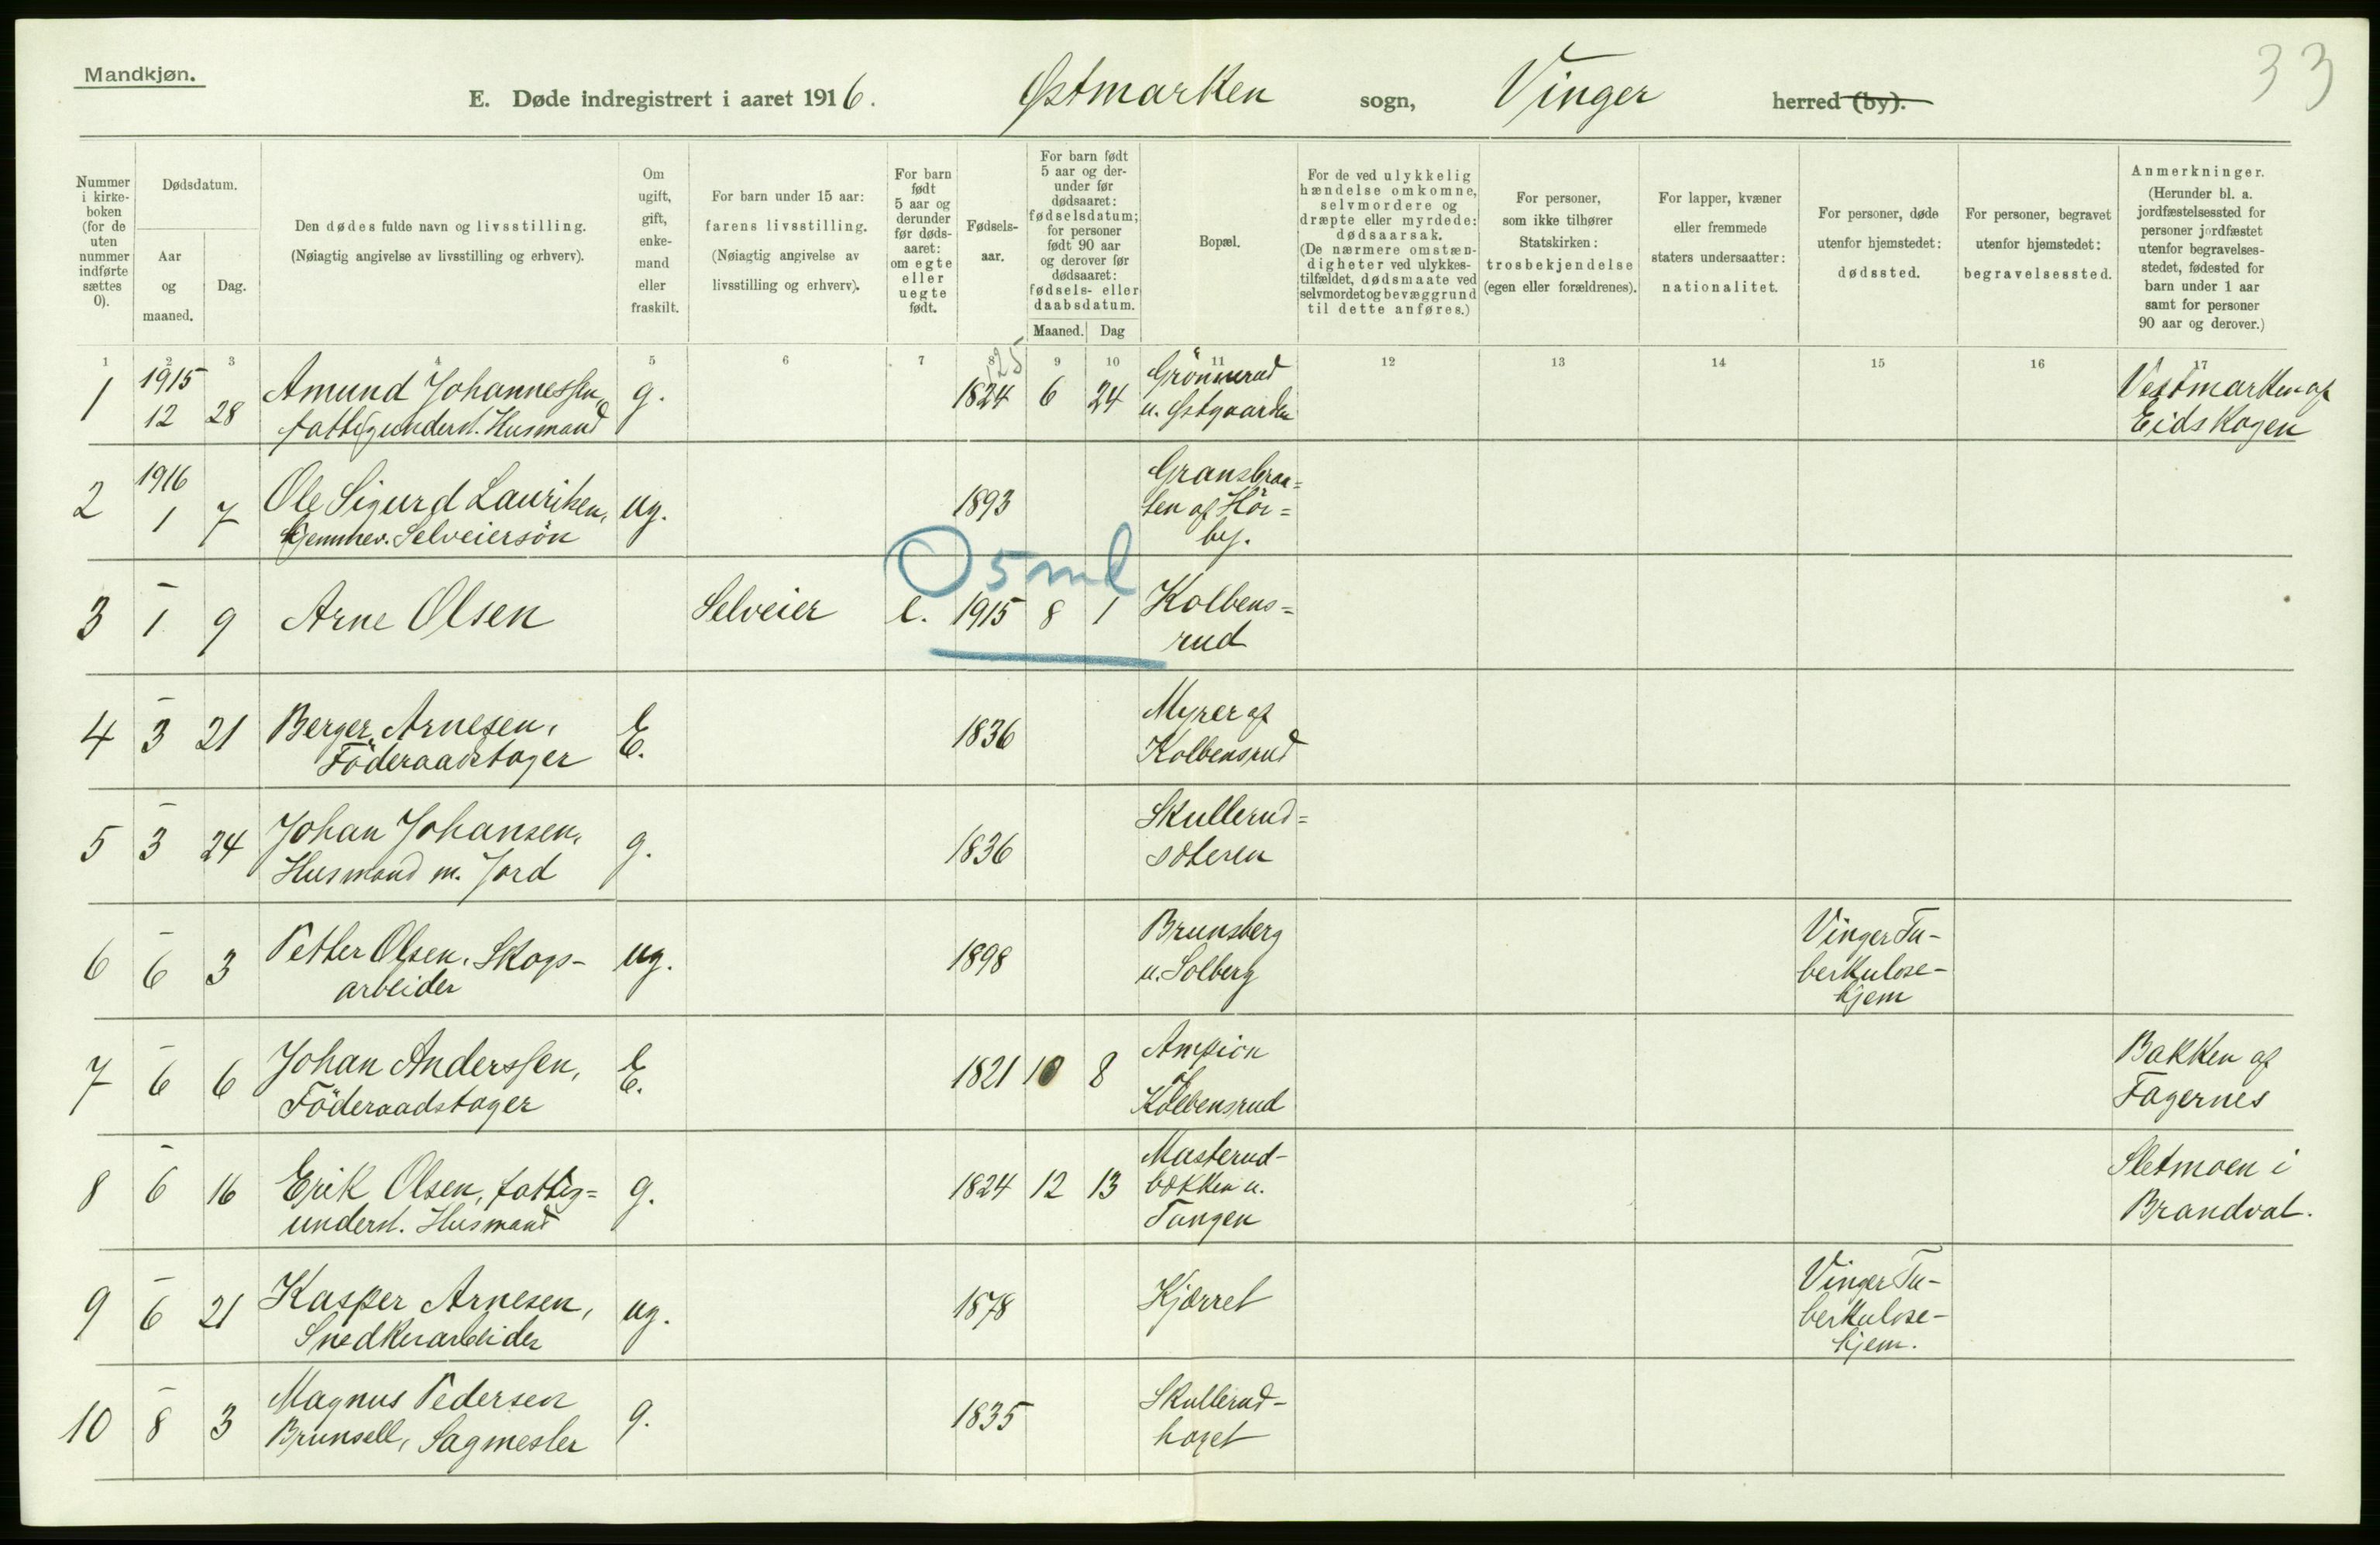 33
Mandkjøn.
E. Døde indregistrert i aaret 1916. Østmarken sogn, Vinger herred (by).
Nummer
i kirke-
boken
(for de
uten
nummer
indførte
sættes
0).
Dødsdatum.
Aar
og
maaned.
Dag.
Den dødes fulde navn og livsstilling.
(Nøiagtig angivelse av livsstilling og erhverv).
Om
ugift,
gift,
enke-
mand
eller
fraskilt.
For barn under 15 aar:
farens livsstilling.
(Nøiagtig angivelse av
livsstilling og erhverv).
For barn
født
5 aar og
derunder
før døds-
aaret:
om egte
eller
uegte
født.
Fødsels-
aar.
For barn født
5 aar og der-
under før
dødsaaret:
fødselsdatum;
for personer
født 90 aar
og derover før
dødsaaret:
fødsels- eller
daabsdatum.
Maaned. Dag
Bopæl.
For de ved ulykkelig
hændelse omkomne,
selvmordere og
dræpte eller myrdede:
dødsaarsak.
(De nærmere omstæn-
digheter ved ulykkes-
tilfældet, dødsmaate ved
selvmordet og bevæggrund
til dette anføres.)
For personer,
som ikke tilhører
Statskirken:
trosbekjendelse
(egen eller forældrenes).
For lapper, kvæner
eller fremmede
staters undersaatter:
nationalitet.
For personer, døde
utenfor hjemstedet:
dødssted.
For personer, begravet
utenfor hjemstedet:
begravelsessted.
Anmerkninger.
(Herunder bl. a.
jordfæstelsessted for
personer jordfæstet
utenfor begravelses-
stedet, fødested for
barn under 1 aar
samt for personer
90 aar og derover.)
1 2 3 4 5 6 7 8 9 10 11 12 13 14 15 16 17
1 1915 12 28
Amund Johannessen,
fattigunderst. Husmand
g. 1824 25 6 24
u. Østgaarden
Vestmarken af
Eidskogen
2 1916 1 7
Ole Sigurd Lauritsen,
hjemmev. Selveiersön
ug. 1893
Gransbraa=
ten af Hör=
by.
5 md
3 – 1 9 Arne Olsen Selveier e. 1915 8 1
Kolbens=
rud
4 – 3 21
Berger Arnesen,
Föderaadstager
E. 1836
Myrer af
Kolbensrud
5 – 3 24
Johan Johansen,
Husmand m. Jord
g. 1836
Skullerud=
sæteren
6 – 6 3
Petter Olsen, Skogs-
arbeider
ug. 1898
Brunsberg
u. Solberg
Vinger Tu-
berkulose-
hjem
7 – 6 6
Johan Anderssen,
Föderaadstager
E. 1821 10 8
af
Kolbensrud
Bakken af
Fagernes
8 – 6 16
Erik Olsen, fattig=
underst. Husmand
g. 1824 12 13
Masterud-
bækken u.
Tangen
Sletmoen i
Brandval.
9 – 6 21
Kasper Arnesen,
Snedkerarbeider
ug. 1878
Kjærret
Vinger Tu-
berkulose-
hjem.
10 – 8 3
Magnus Pedersen
Brunsell, Sagmester
g. 1835
Skullerud-
haget